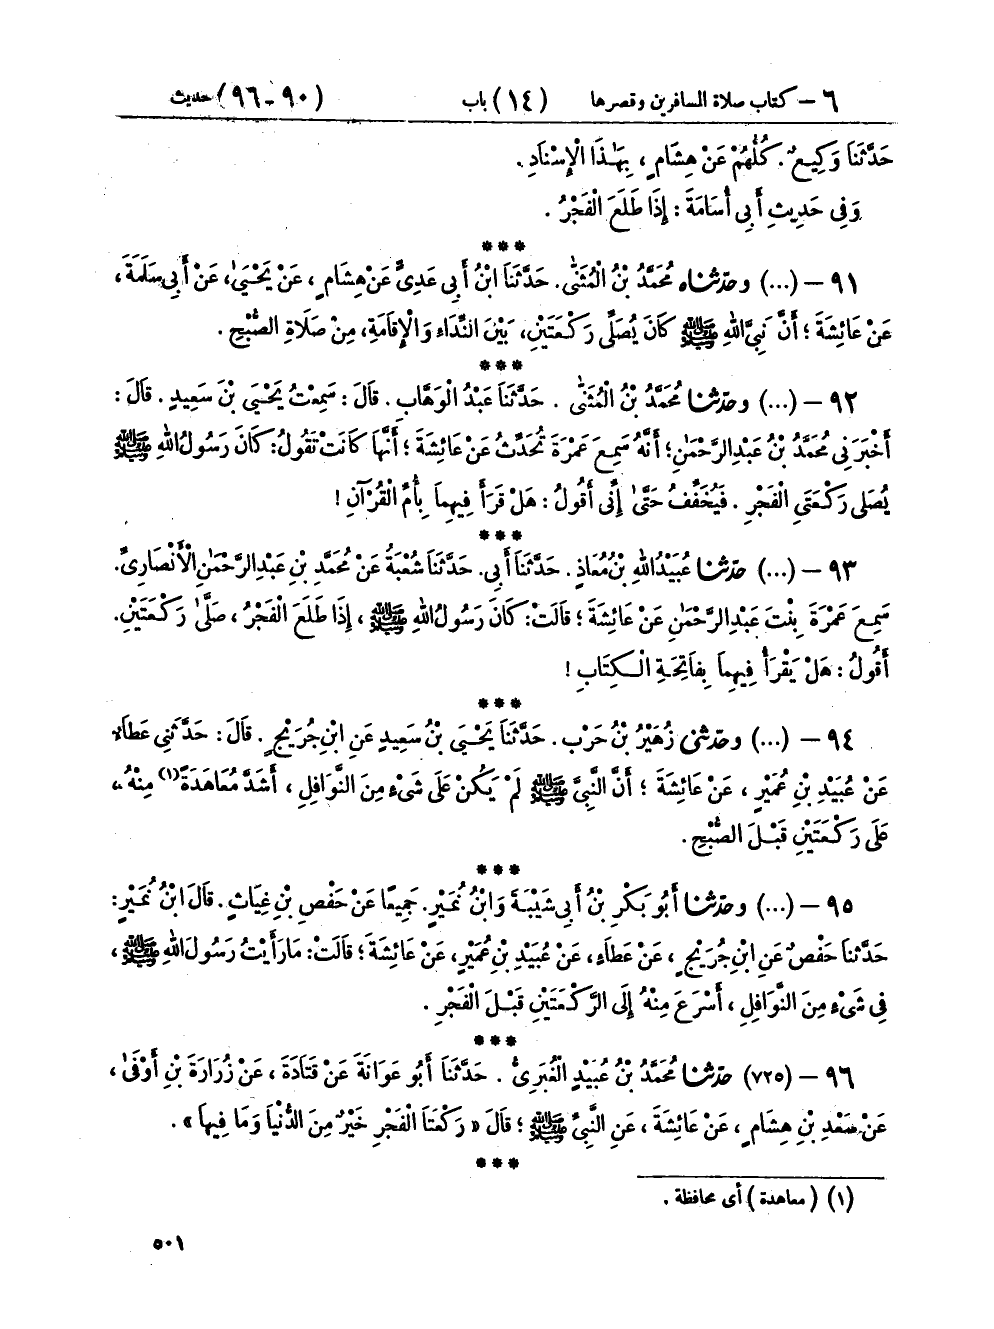 ٦ – كتاب صلاة المسافرين وقصرها (١٤) باب (٩٠-٩٦) حديث
حَدَّثَنَا وَكِيعٌ. كُلُّهُمْ عَنْ هِشَامٍ، بِهَذَا الْإِسْنَادِ.
وَفِي حَدِيثِ أَبِي أُسَامَةَ: إِذَا طَلَعَ الْفَجْرُ.
***
٩١ – (...) وحدّثناه مُحَمَّدُ بْنُ الْمُثَنَّى. حَدَّثَنَا ابْنُ أَبِي عَدِيٍّ عَنْ هِشَامٍ، عَنْ يَحْيَىٰ، عَنْ أَبِي سَلَمَةَ،
عَنْ عَائِشَةَ؛ أَنَّ نَبِيَّ اللهِ ﷺ كَانَ يُصَلِّي رَكْعَتَيْنِ، بَيْنَ النِّدَاءِ وَالْإِقَامَةِ، مِنْ صَلَاةِ الصُّبْحِ.
***
٩٢ – (...) وحدّثنا مُحَمَّدُ بْنُ الْمُثَنَّى. حَدَّثَنَا عَبْدُ الْوَهَّابِ. قَالَ: سَمِعْتُ يَحْيَى بْنَ سَعِيدٍ. قَالَ:
أَخْبَرَنِي مُحَمَّدُ بْنُ عَبْدِ الرَّحْمَٰنِ؛ أَنَّهُ سَمِعَ عَمْرَةَ تُحَدِّثُ عَنْ عَائِشَةَ؛ أَنَّهَا كَانَتْ تَقُولُ: كَانَ رَسُولُ اللهِ ﷺ
يُصَلِّي رَكْعَتَيِ الْفَجْرِ. فَيُخَفِّفُ حَتَّىٰ إِنِّي أَقُولُ: هَلْ قَرَأَ فِيهِمَا بِأُمِّ الْقُرْآنِ!
***
٩٣ – (...) حدّثنا عُبَيْدُ اللهِ بْنُ مُعَاذٍ. حَدَّثَنَا أَبِي. حَدَّثَنَا شُعْبَةُ عَنْ مُحَمَّدِ بْنِ عَبْدِ الرَّحْمَٰنِ الْأَنْصَارِيِّ.
سَمِعَ عَمْرَةَ بِنْتَ عَبْدِ الرَّحْمَٰنِ عَنْ عَائِشَةَ؛ قَالَتْ: كَانَ رَسُولُ اللهِ ﷺ، إِذَا طَلَعَ الْفَجْرُ، صَلَّىٰ رَكْعَتَيْنِ.
أَقُولُ: هَلْ يَقْرَأُ فِيهِمَا بِفَاتِحَةِ الْكِتَابِ!
***
٩٤ – (...) وحدّثني زُهَيْرُ بْنُ حَرْبٍ. حَدَّثَنَا يَحْيَى بْنُ سَعِيدٍ عَنِ ابْنِ جُرَيْجٍ. قَالَ: حَدَّثَنِي عَطَاءٌ
عَنْ عُبَيْدِ بْنِ عُمَيْرٍ، عَنْ عَائِشَةَ؛ أَنَّ النَّبِيَّ ﷺ لَمْ يَكُنْ عَلَى شَيْءٍ مِنَ النَّوَافِلِ، أَشَدَّ مُعَاهَدَةً(١) مِنْهُ،
عَلَى رَكْعَتَيْنِ قَبْلَ الصُّبْحِ.
***
٩٥ – (...) وحدّثنا أَبُو بَكْرِ بْنُ أَبِي شَيْبَةَ وَابْنُ نُمَيْرٍ. جَمِيعًا عَنْ حَفْصِ بْنِ غِيَاثٍ. قَالَ ابْنُ نُمَيْرٍ:
حَدَّثَنَا حَفْصٌ عَنِ ابْنِ جُرَيْجٍ، عَنْ عَطَاءٍ، عَنْ عُبَيْدِ بْنِ عُمَيْرٍ، عَنْ عَائِشَةَ؛ قَالَتْ: مَا رَأَيْتُ رَسُولَ اللهِ ﷺ،
فِي شَيْءٍ مِنَ النَّوَافِلِ، أَسْرَعَ مِنْهُ إِلَى الرَّكْعَتَيْنِ قَبْلَ الْفَجْرِ.
***
٩٦ – (٧٢٥) حدّثنا مُحَمَّدُ بْنُ عُبَيْدٍ الْغُبَرِيُّ. حَدَّثَنَا أَبُو عَوَانَةَ عَنْ قَتَادَةَ، عَنْ زُرَارَةَ بْنِ أَوْفَىٰ،
عَنْ سَعْدِ بْنِ هِشَامٍ، عَنْ عَائِشَةَ، عَنِ النَّبِيِّ ﷺ؛ قَالَ « رَكْعَتَا الْفَجْرِ خَيْرٌ مِنَ الدُّنْيَا وَمَا فِيهَا ».
***
(١) (معاهدة) أي محافظة.
٥٠١